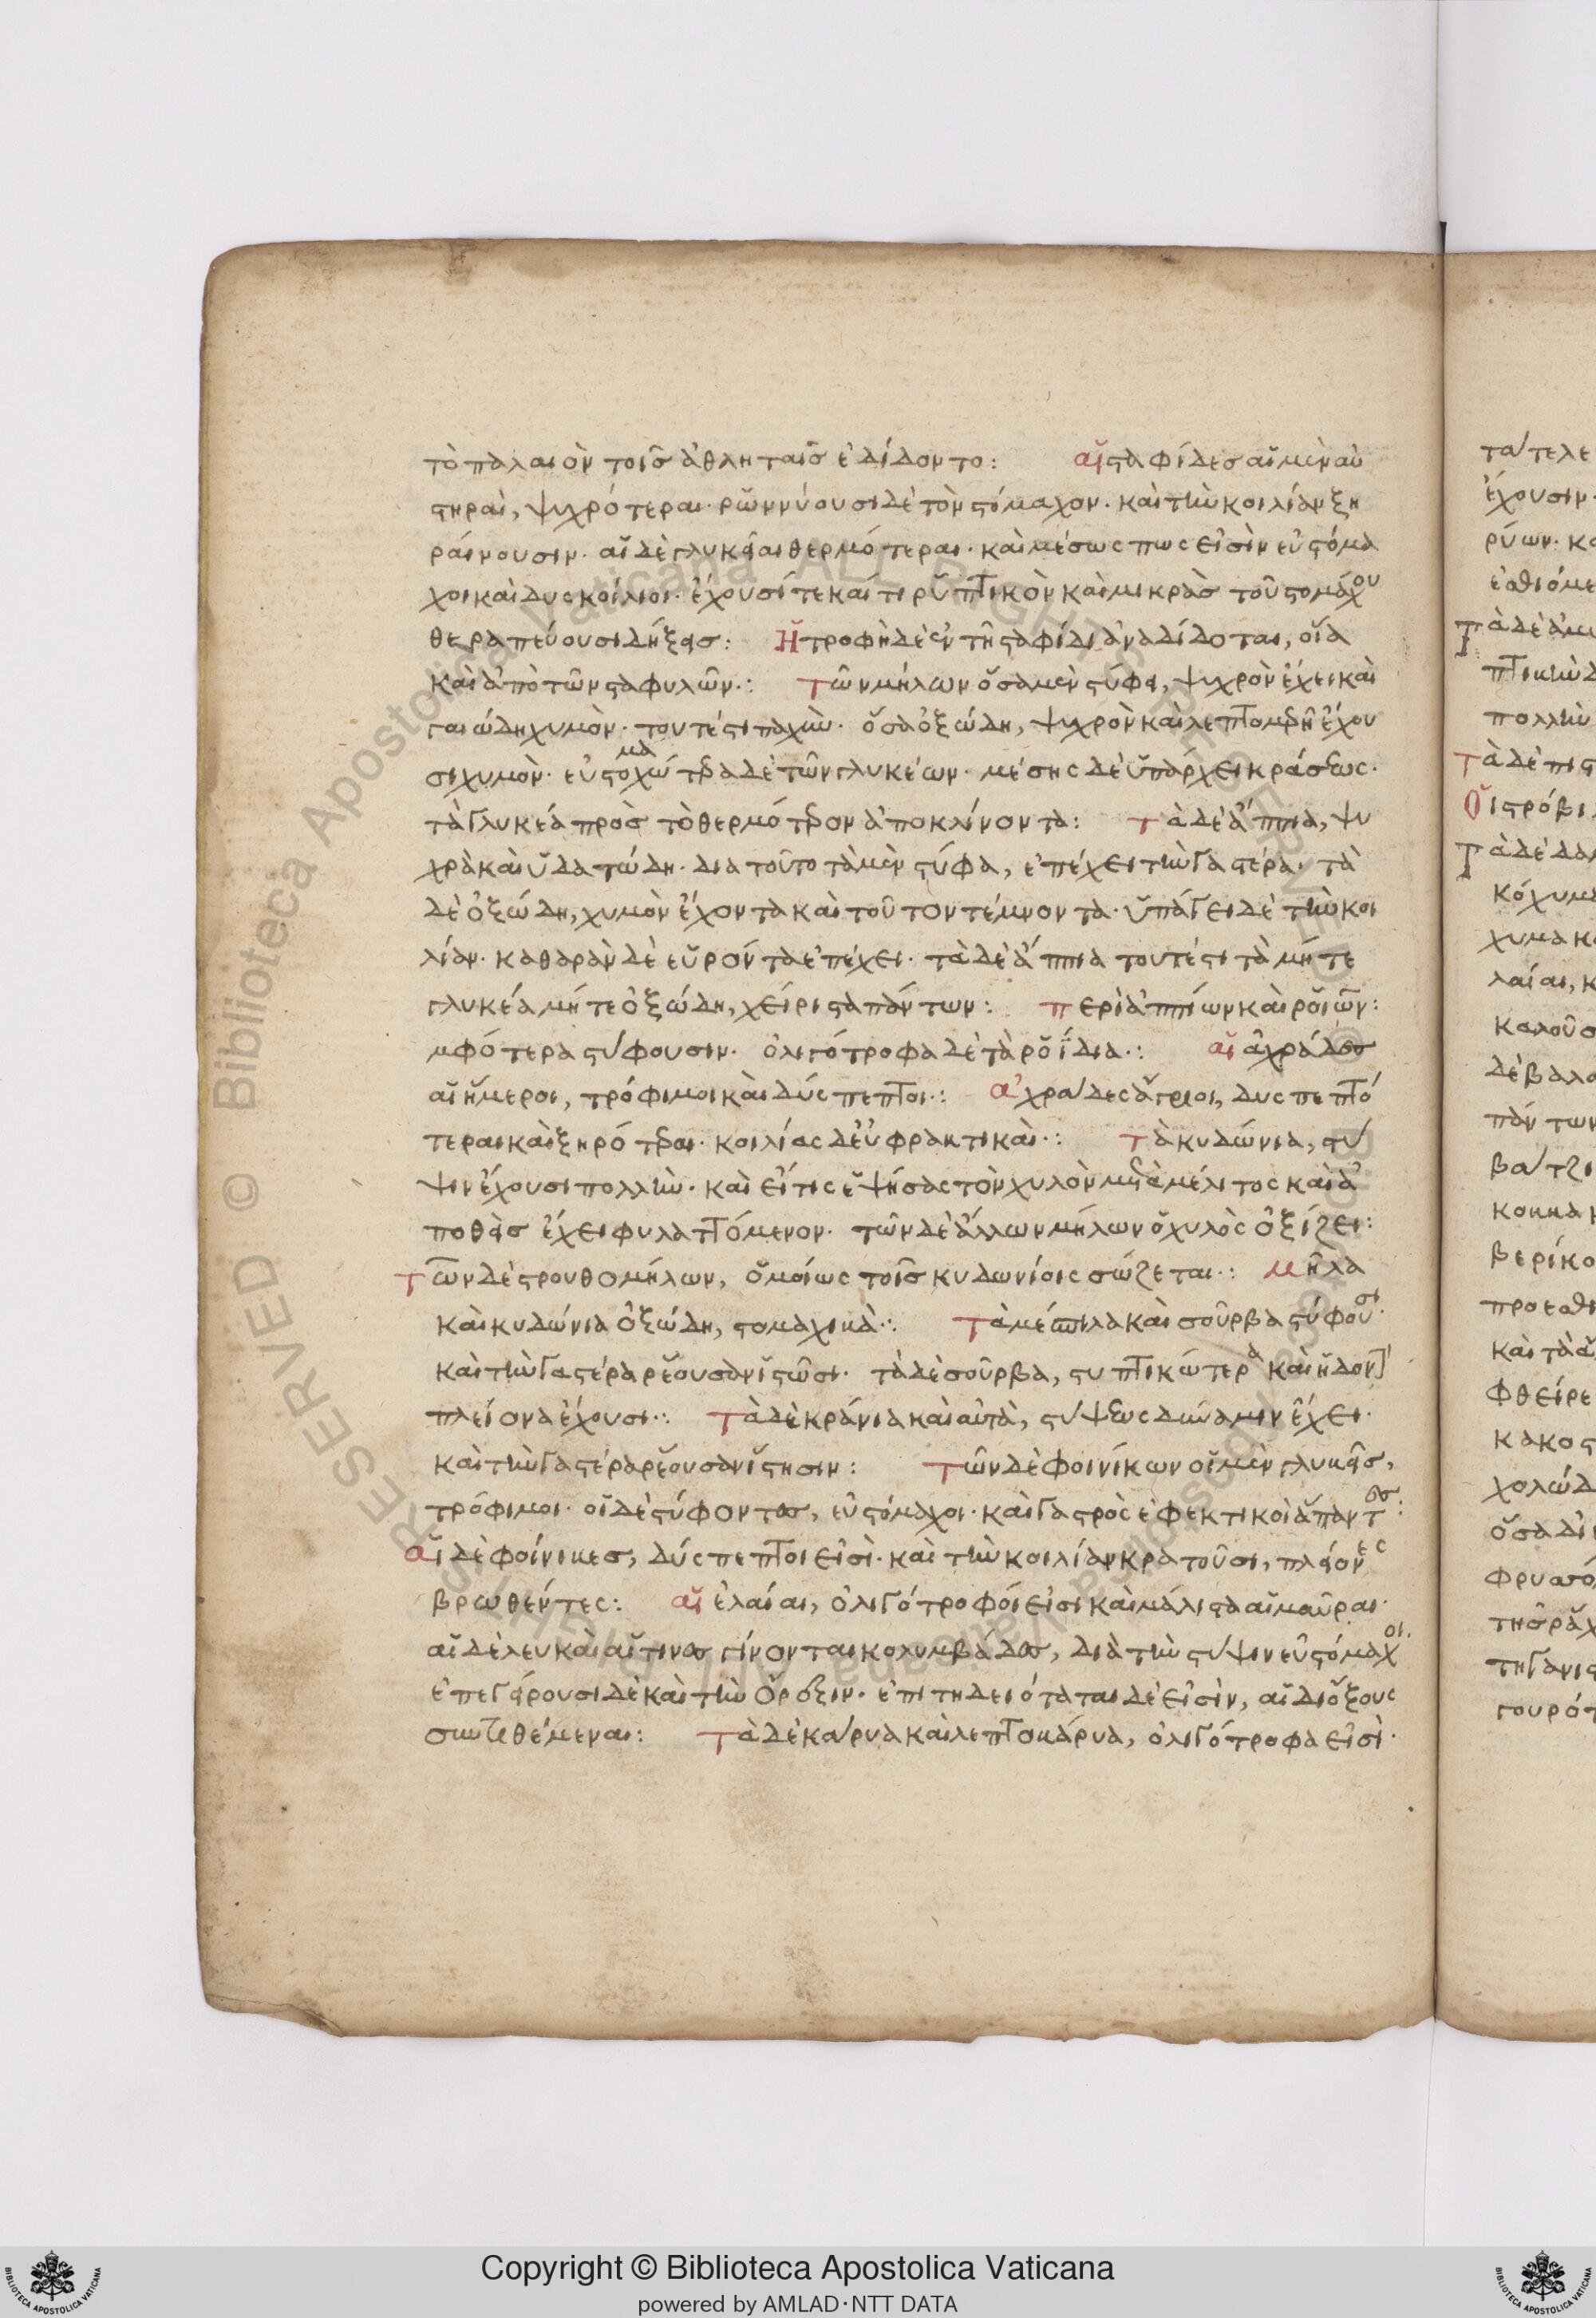 τὸ παλαιὸν τοῖς ἀθληταῖς ἐδίδοντο: αἱ σταφίδες αἱ μὲν αὐ
στηραὶ, ψυχρότεραι· ῥωννύουσι δὲ τὸν στόμαχον· καὶ τὴν κοιλίαν ξη
ραίνουσιν· αἱ δὲ γλυκεῖαι θερμότεραι· καὶ μέσως πως εἰσὶν εὐστόμα
χοι καὶ δυσκοίλιοι· ἔχουσί τε καί τι ῥυπτικὸν καὶ μικρὰς τοῦ στομάχου
θεραπεύουσι δήξεις: Ἡ τροφὴ δὲ ἐν τῇ σταφίδι ἀναδίδοται, οἵα
καὶ ἀπὸ τῶν σταφυλῶν: Τῶν μήλων ὅσα μὲν στύφει, ψυχρὸν ἔχει καὶ
γαιώδη χυμὸν· τουτέστι παχὺν· ὅσα ὀξώδη, ψυχρὸν καὶ λεπτομερῆ ἔχου
σι χυμὸν· εὐστομαχώτερα δὲ τῶν γλυκέων· μέσης δὲ ὑπάρχει κράσεως·
τὰ γλυκέα πρὸς τὸ θερμότερον ἀποκλίνοντα: τὰ δὲ ἄππια, ψυ
χρὰ καὶ ὑδατώδη· δια τοῦτο τὰ μὲν στύφα, ἐπέχει τὴν γαστέρα· τὰ
δὲ ὀξώδη, χυμὸν ἔχοντα καὶ τοῦτον τέμνοντα· ὑπάγει δὲ τὴν κοι
λίαν· καθαρὰν δὲ εὑρόντα ἐπέχει· τὰ δὲ ἄππια τουτέστι τὰ μήτε
γλυκέα μήτε ὀξώδη, χείριστα πάντων: περὶ ἀππίων καὶ ῥοιῶν:
μφότερα στύφουσιν· ὀλιγότροφα δὲ τὰ ῥοΐδια: αἱ ἀχράδες
αἱ ἥμεροι, τρόφιμοι καὶ δύσπεπτοι: ἀχράδες ἄγριοι, δυσπεπτό
τεραι καὶ ξηρότεραι· κοιλίας δὲ ἐμφρακτικαὶ: τὰ κυδώνια, στύ
ψιν ἔχουσι πολλὴν· καὶ εἴ τις ἑψήσας τὸν χυλὸν μετὰ μέλιτος καὶ ἀ
ποθεὶς ἔχει φυλαττόμενον· τῶν δὲ ἄλλων μήλων ὁ χυλὸς ὀξίζει:
τῶν δὲ στρουθομήλων, ὁμοίως τοῖς κυδωνίοις σώζεται: μῆλα
καὶ κυδώνια ὀξώδη, στομαχικὰ: Τὰ μέσπιλα καὶ σοῦρβα στύφουσι·
καὶ τὴν γαστέρα ῥέουσαν ἱστῶσι· τὰ δὲ σοῦρβα, στυπτικώτερα καὶ ἡδονὴν
πλείονα ἔχουσι: Τὰ δὲ κράνια καὶ αὐτὰ, στύψεως δύναμιν ἔχει·
καὶ τὴν γαστέρα ῥέουσαν ἵστησιν: Τῶν δὲ φοινίκων οἱ μὲν γλυκεῖς,
τρόφιμοι· οἱ δὲ στύφοντες, εὐστόμαχοι· καὶ γαστρὸς ἐφεκτικοὶ ἅπαντες:
αἱ δὲ φοίνικες, δύσπεπτοι εἰσὶ· καὶ τὴν κοιλίαν κρατοῦσι, πλείονες
βρωθέντες: αἱ ἐλαίαι, ὀλιγότροφοί εἰσι καὶ μάλιστα αἱ μαῦραι·
αἱ δὲ λευκαὶ αἵτινες γίνονται κολυμβάδες, διὰ τὴν στύψιν εὐστόμαχοι·
ἐπεγείρουσι δὲ καὶ τὴν ὄρεξιν· ἐπιτηδειόταται δέ εἰσὶν, αἱ δι' ὄξους
συντεθέμεναι: Τὰ δὲ κάρυα καὶ λεπτοκάρυα, ὀλιγότροφα εἰσὶ·
Copyright © Biblioteca Apostolica Vaticana
powered by AMLAD·NTT DATA